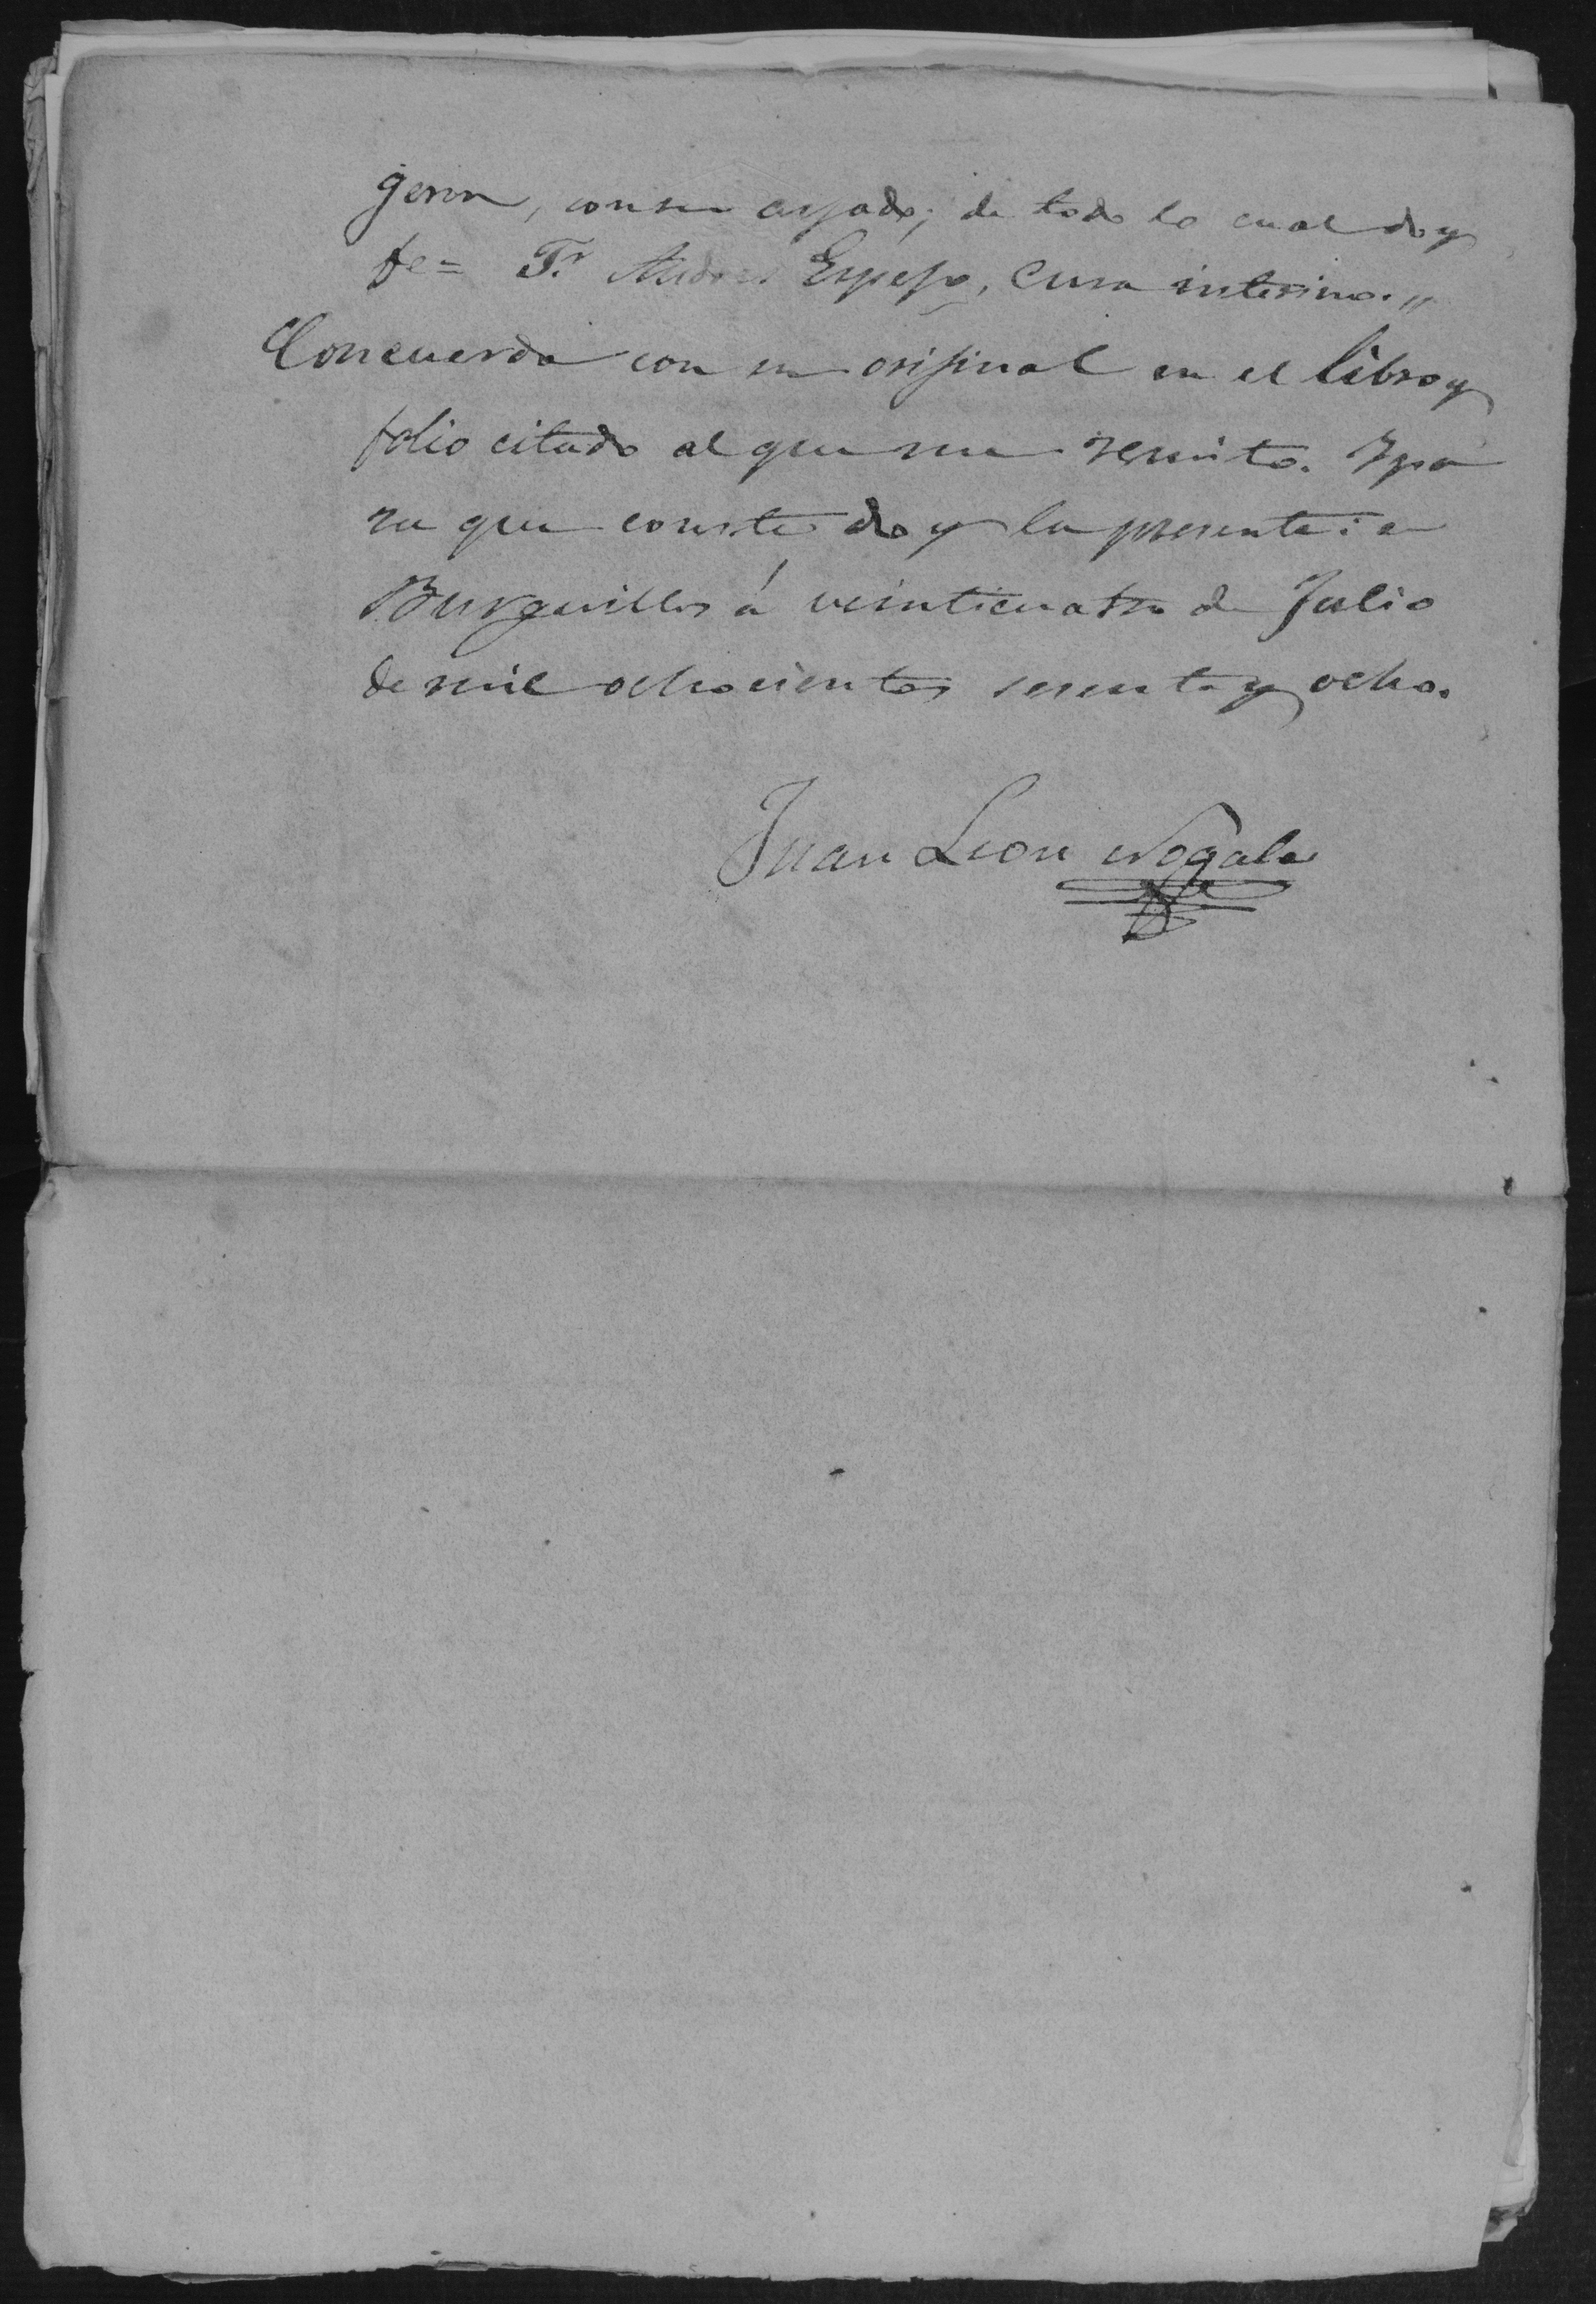 geron, con su ahijado; de todo lo cual doy
fe = Fr Andres Espejo, Cura interino. "
Concuerda con su original en el libro y
folio citado al que me remito. Y pa
ra que conste doy la presente en
Burguillos á veinticuatro de Julio
de mil ochocientos sesenta y ocho.
Juan Leon Nogales